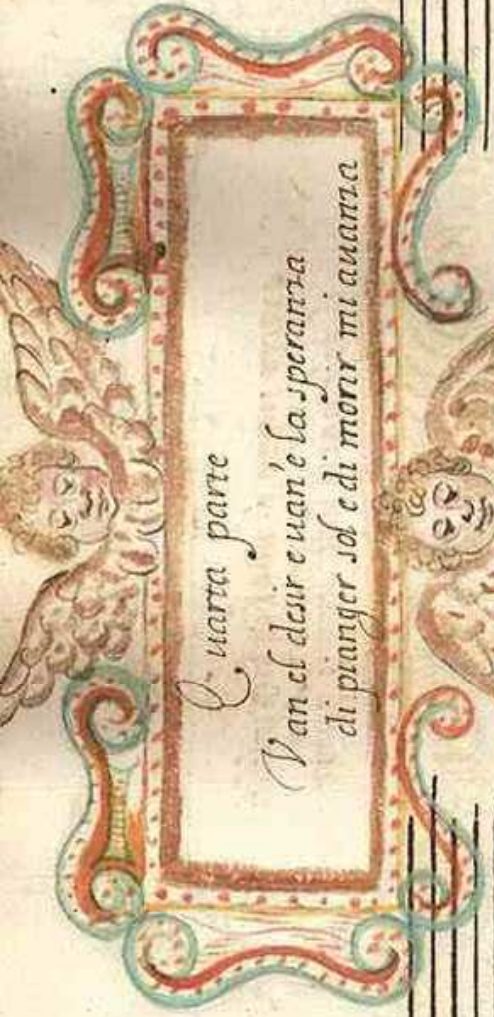 Quarta parte
Van el desir e uan'e la speranza
di pianger sol e di morir mi auanza